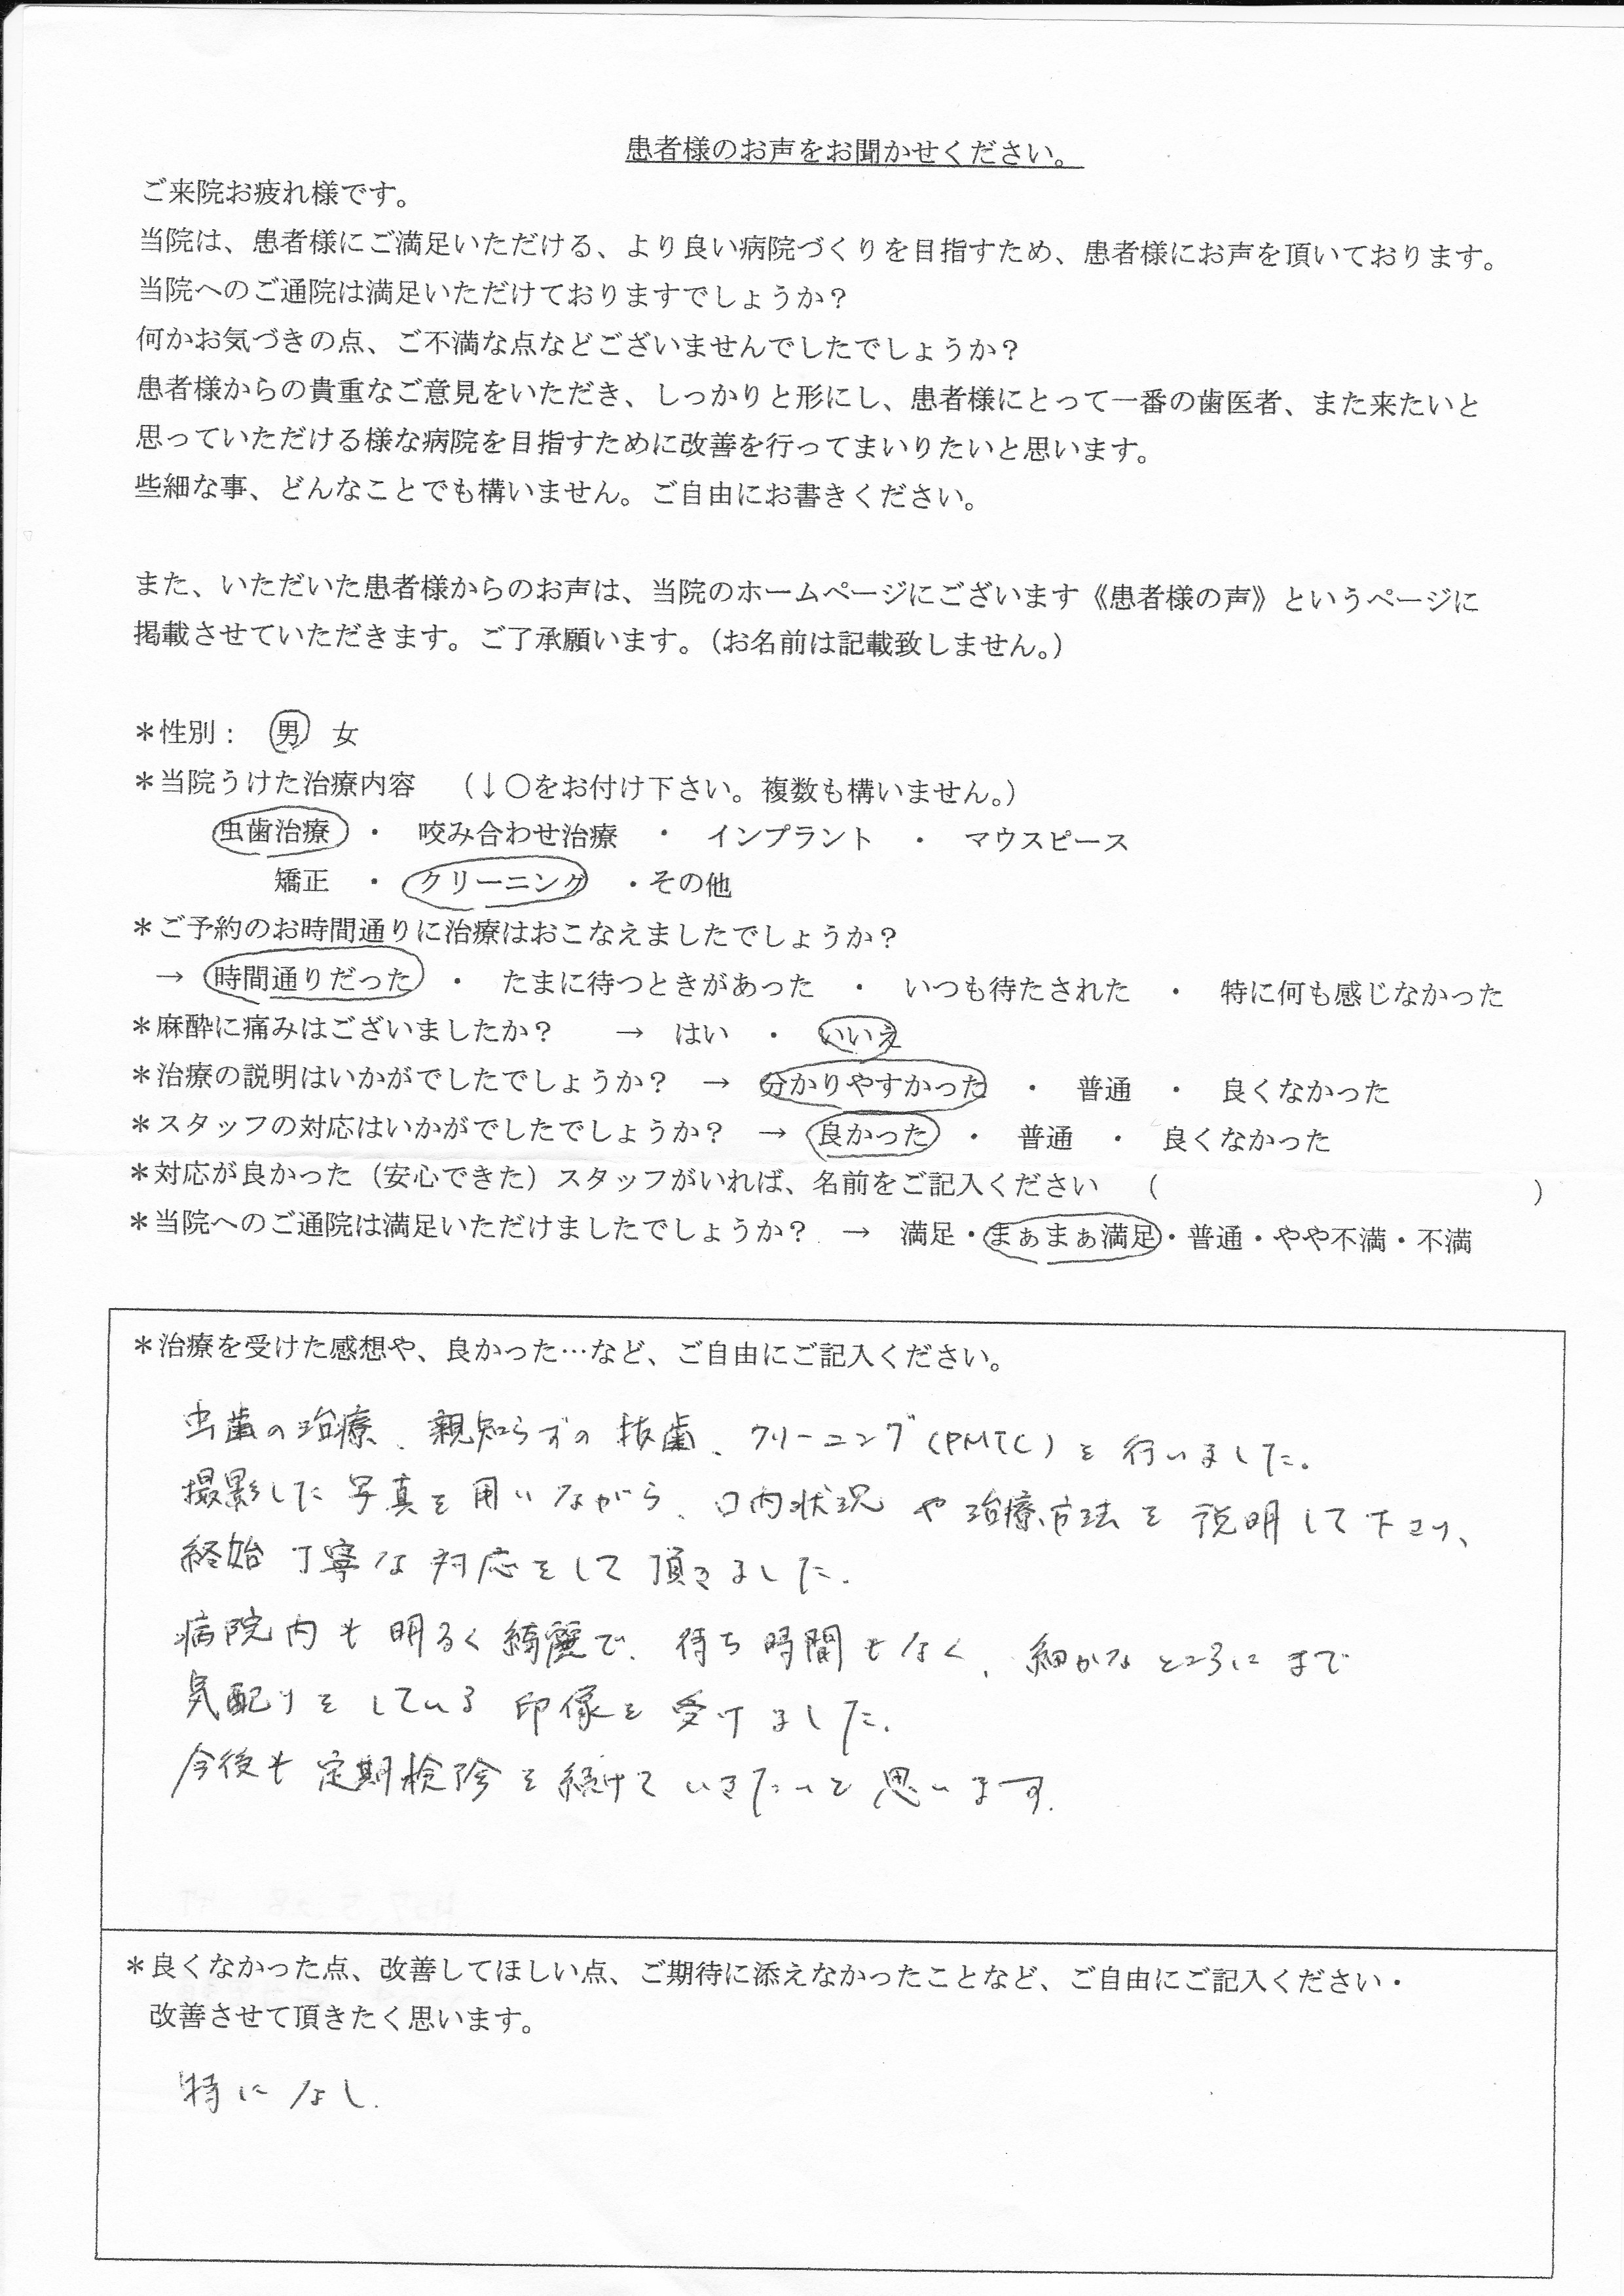 患者様のお声をお聞かせください。
ご来院お疲れ様です。
当院は、患者様にご満足いただける、より良い病院づくりを目指すため、患者様にお声を頂いております。
当院へのご通院は満足いただけておりますでしょうか？
何かお気づきの点、ご不満な点などございませんでしたでしょうか？
患者様からの貴重なご意見をいただき、しっかりと形にし、患者様にとって一番の歯医者、また来たいと
思っていただける様な病院を目指すために改善を行ってまいりたいと思います。
些細な事、どんなことでも構いません。ご自由にお書きください。
また、いただいた患者様からのお声は、当院のホームページにございます《患者様の声》というページに
掲載させていただきます。ご了承願います。（お名前は記載致しません。）
＊性別： 男 女
＊当院うけた治療内容 （↓〇をお付け下さい。複数も構いません。）
虫歯治療 ・ 咬み合わせ治療 ・ インプラント ・ マウスピース
矯正 ・ クリーニング ・その他
＊ご予約のお時間通りに治療はおこなえましたでしょうか？
→ 時間通りだった ・ たまに待つときがあった ・ いつも待たされた ・ 特に何も感じなかった
＊麻酔に痛みはございましたか？ → はい ・ いいえ
＊治療の説明はいかがでしたでしょうか？ → 分かりやすかった ・ 普通 ・ 良くなかった
＊スタッフの対応はいかがでしたでしょうか？ → 良かった ・ 普通 ・ 良くなかった
＊対応が良かった（安心できた）スタッフがいれば、名前をご記入ください （ ）
＊当院へのご通院は満足いただけましたでしょうか？ → 満足・まぁまぁ満足・普通・やや不満・不満
＊治療を受けた感想や、良かった…など、ご自由にご記入ください。
虫歯の治療、親知らずの抜歯、クリーニング（PMTC）を行いました。
撮影した写真を用いながら、口内状況や治療方法を説明して下さり、
終始丁寧な対応をして頂きました。
病院内も明るく綺麗で、待ち時間もなく、細かなところにまで
気配りをしている印像を受けました。
今後も定期検診を続けていきたいと思います。
＊良くなかった点、改善してほしい点、ご期待に添えなかったことなど、ご自由にご記入ください・
改善させて頂きたく思います。
特になし.